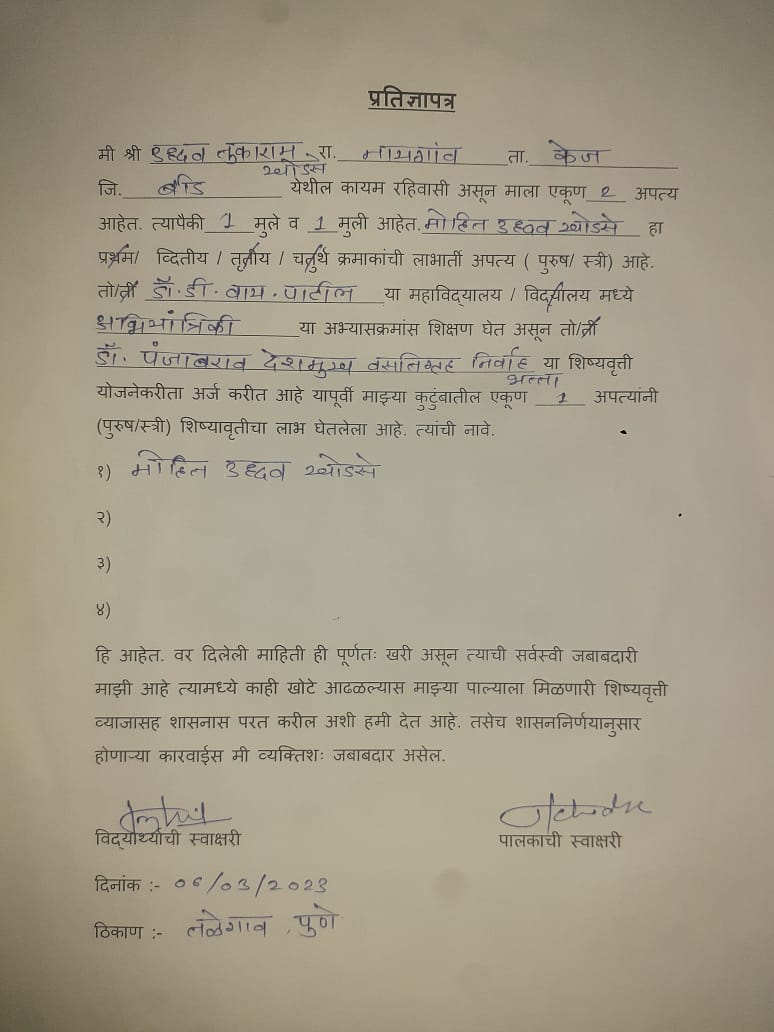 प्रतिज्ञापत्र
मी श्री उध्दव तुकाराम रा. नायगांव ता. केज
खोडसे
जि. बीड येथील कायम रहिवासी असून माला एकूण 2 अपत्य
आहेत. त्यापैकी 1 मुले व 1 मुली आहेत. मोहित उध्दव खोडसे हा
प्रथम/ व्दितीय / तृतीय / चतुर्थ क्रमाकांची लाभार्ती अपत्य ( पुरुष/ स्त्री) आहे.
तो/ती डॉ. डी. वाय. पाटील या महाविद्यालय / विद्यालय मध्ये
अभियांत्रिकी या अभ्यासक्रमांस शिक्षण घेत असून तो/ती
डॉ. पंजाबराव देशमुख वसतिगृह निर्वाह या शिष्यवृत्ती
भत्ता
योजनेकरीता अर्ज करीत आहे यापूर्वी माझ्या कुटुंबातील एकूण 1 अपत्यांनी
(पुरुष/स्त्री) शिष्यावृतीचा लाभ घेतलेला आहे. त्यांची नावे.
१) मोहित उध्दव खोडसे
२)
३)
४)
हि आहेत. वर दिलेली माहिती ही पूर्णतः खरी असून त्याची सर्वस्वी जबाबदारी
माझी आहे त्यामध्ये काही खोटे आढळल्यास माझ्या पाल्याला मिळणारी शिष्यवृत्ती
व्याजासह शासनास परत करील अशी हमी देत आहे. तसेच शासननिर्णयानुसार
होणाऱ्या कारवाईस मी व्यक्तिशः जबाबदार असेल.
विद्यार्थ्याची स्वाक्षरी पालकाची स्वाक्षरी
दिनांक :- 06/03/2023
ठिकाण :- तळेगाव , पुणे